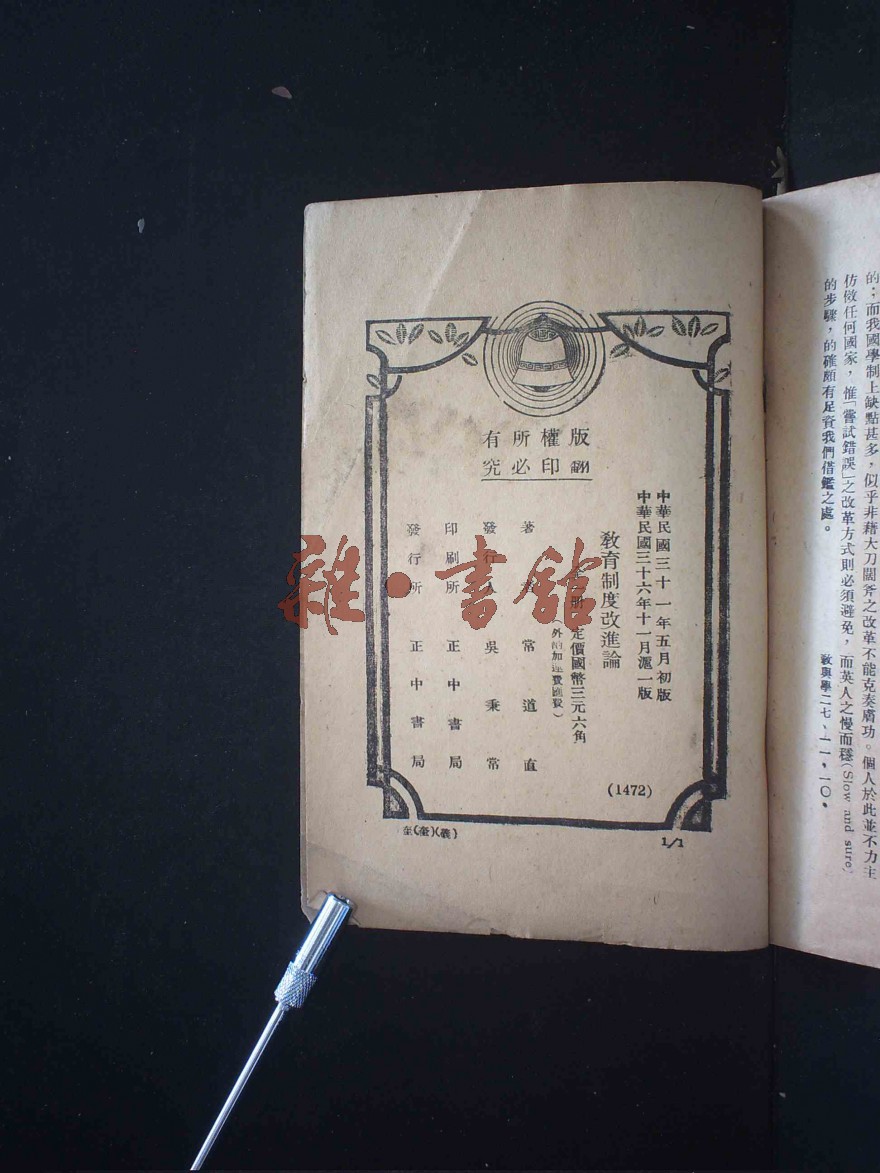 的；而我國學制上缺點甚多，似乎非藉大刀闊斧之改革不能克奏膚功。個人於此並不力主
仿傚任何國家，惟「嘗試錯誤」之改革方式則必須避免，而英人之慢而穩(Slow and sure)
的步驟，的確頗有足資我們借鑑之處。
教與學二七、一一，一〇。
版權所有
翻印必究
中華民國三十一年五月初版
中華民國三十六年十一月滬一版
教育制度改進論
冊 定價國幣三元六角
(外 加運費匯費)
著 者 常道直
發行人 吳秉常
印刷所 正中書局
發行所 正中書局
(1472)
1/1
雜·書館